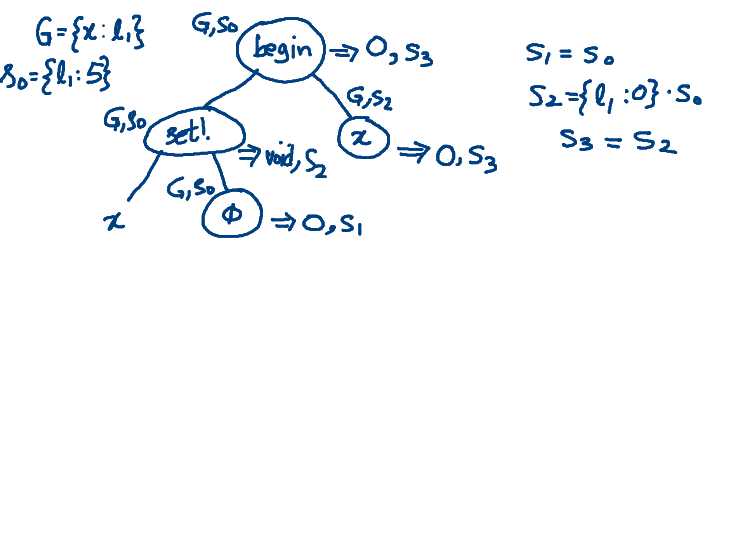 G={x:l₁}
s₀={l₁:5}
G,s₀
begin ⇒ 0,s₃
G,s₀
set! ⇒ void,s₂
G,s₂
x ⇒ 0,s₃
x
G,s₀
0 ⇒ 0,s₁
s₁ = s₀
s₂={l₁:0}·s₀
s₃ = s₂